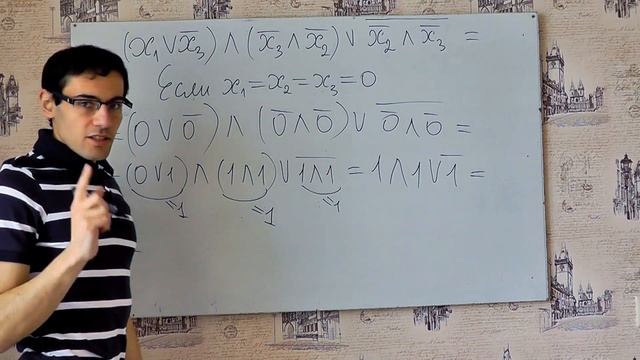 (x₁ ∨ x̅₃) ∧ (x̅₃ ∧ x̅₂) ∨ x̅₂ ∧ x̅₃ =
Если x₁=x₂=x₃=0
(0 ∨ 0̅) ∧ (0̅ ∧ 0̅) ∨ \overline{0̅ ∧ 0̅} =
(0 ∨ 1) ∧ (1 ∧ 1) ∨ \overline{1 ∧ 1} = 1 ∧ 1 ∨ 1̅ =
=1 =1 =1